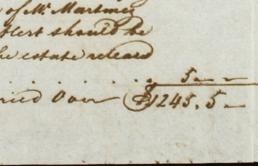 of Mr. Martiner
should be
the estate released
5 - -
ried Over $1245.5 -